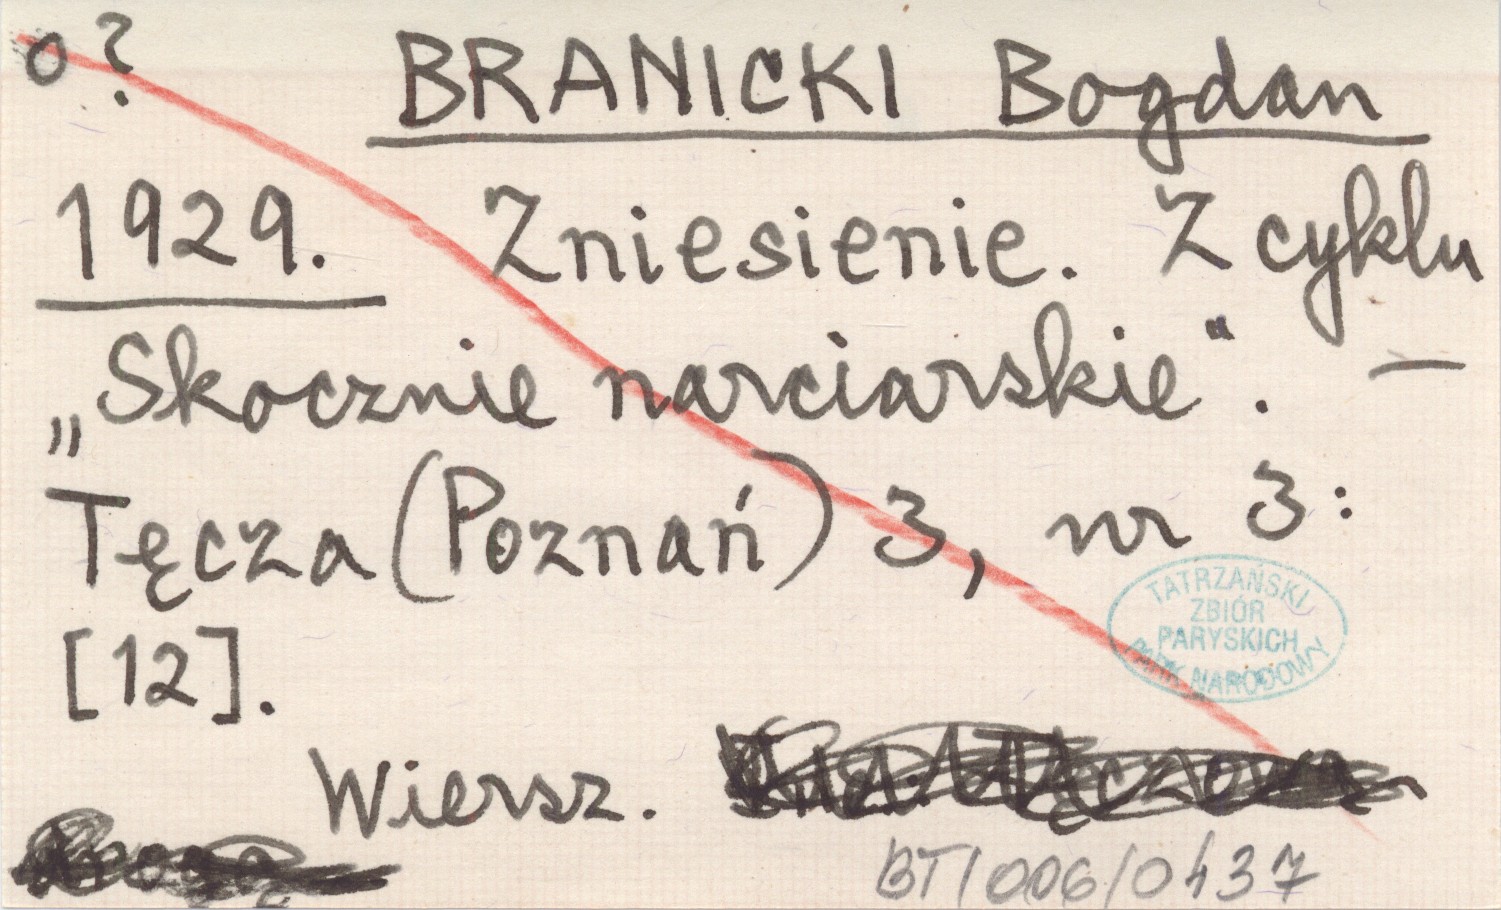 o?
BRANICKI Bogdan
1929. Zniesienie. Z cyklu
„Skocznie narciarskie". —
Tęcza (Poznań) 3, nr 3:
[12].
TATRZAŃSKI
ZBIÓR
PARYSKICH
PARK NARODOWY
Wiersz.
BT/006/0437